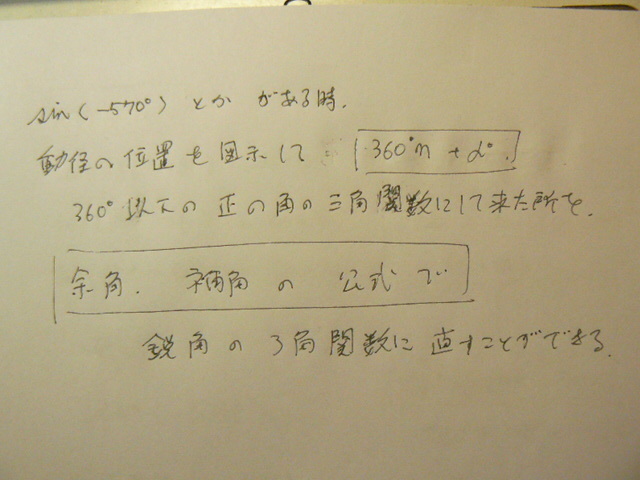 sin(-570°) とか がある時.
動径の位置を図示して 360°n + α°.
360°以下の正の角の三角関数にして来た所を.
余角. 補角の 公式で
鋭角の3角関数に直すことができる.